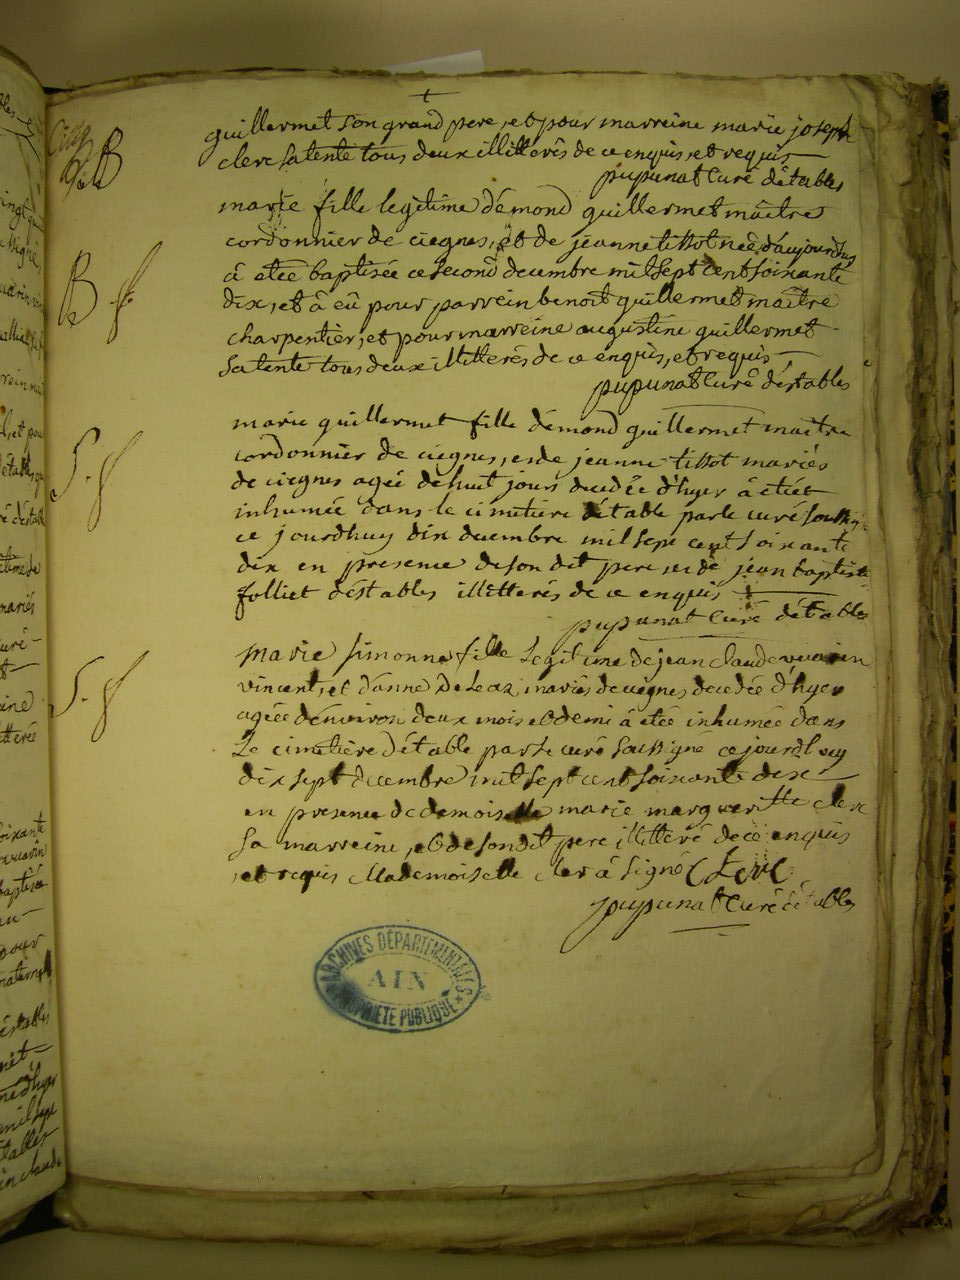 guillermet son grand pere, et pour marreine marie joseph
clerc sa tente tous deux illitterés de ce enquis, et requis
pupunat curé d'étables
B
marie fille legitime d'émond guillermet maître
cordonnier de ciegnes, et de jeanne tissot née d'aujourdhuy
à etée baptisée ce second decembre mil sept cent soixante
B f.
dix, et à eü pour parrein benoit guillermet maître
charpentier, et pour marreine augustine guillermet
sa tente tous deux illitterés de ce enquis, et requis
pupunat curé d'éstables
marie guillermet fille d'émond guillermet maitre
cordonnier de ciegnes, et de jeanne tissot mariés
S. f
de ciegnes agée de huit jours decedée d'hyer à etiée
inhumée dans le cimitiere d'étable par le curé soussig.
ce jourdhuy dix decembre mil sept cent soixante
dix en presence de son dit pere et de jean baptiste
folliet d'éstables illitterés de ce enquis
pupunat curé d'étables
marie simonne fille legitime de jean claude
S. f
vincent, et d'anne mariés de ciegnes decedée d'hyer
agée d'énviron deux mois et demi à etée inhumée dans
Le cimitière d'étable par le curé soussigné ce jourdhuy
dix sept decembre mil sept cent soixante dix
en presence de demoiselle marie margueritte clerc
sa marreine, et de son dit pere illitteré de ce enquis
, et requis Mademoiselle cler à signé Clerc
pupunat curé d'étables
ARCHIVES DÉPARTEMENTALES
AIN
PROPRIÉTÉ PUBLIQUE